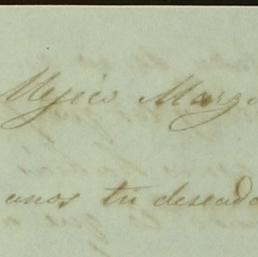 Mejico Marzo
anos tu deseada